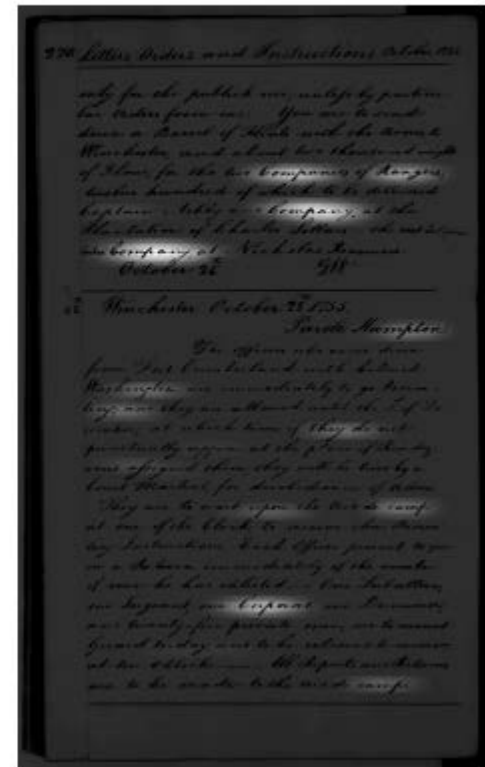 270 Letters Orders and Instructions October 1755
only for the publick use, unless by particu-
lar Orders from me. You are to send
down a Barrel of with the Arms to
Winchester, and about two thousand weight
of Flour, for the two Companies of Rangers,
twelve hundred of which to be delivered
Captain Ashby and Company, at the
Plantation of Charles Sellars the rest to
Company at Nicholas
October 28th GW
Winchester October 28th 1755
Parole Hampton
The Officers who came down
from Fort Cumberland with Colonel
Washington are immediately to go Recrui-
ting; and they are allowed until the 1st of De
cember, at which time, if they do not
punctually appear at the place of Rendez-
vous assigned them, they will be tried by a
Court Martial for disobedience of Orders
They are to wait upon the Aid de camp
at one of the Clock to receive their Recrui-
ting Instructions. Each Officer present to give
in a Return immediately of the number
of men he has enlisted One Subaltern,
one Serjeant, one Corporal one Drummer,
and twenty-five private men, are to mount
Guard to day and to be relieved to-morrow
at ten o'clock. All Reports and Returns
are to be made to the Aid de camp.